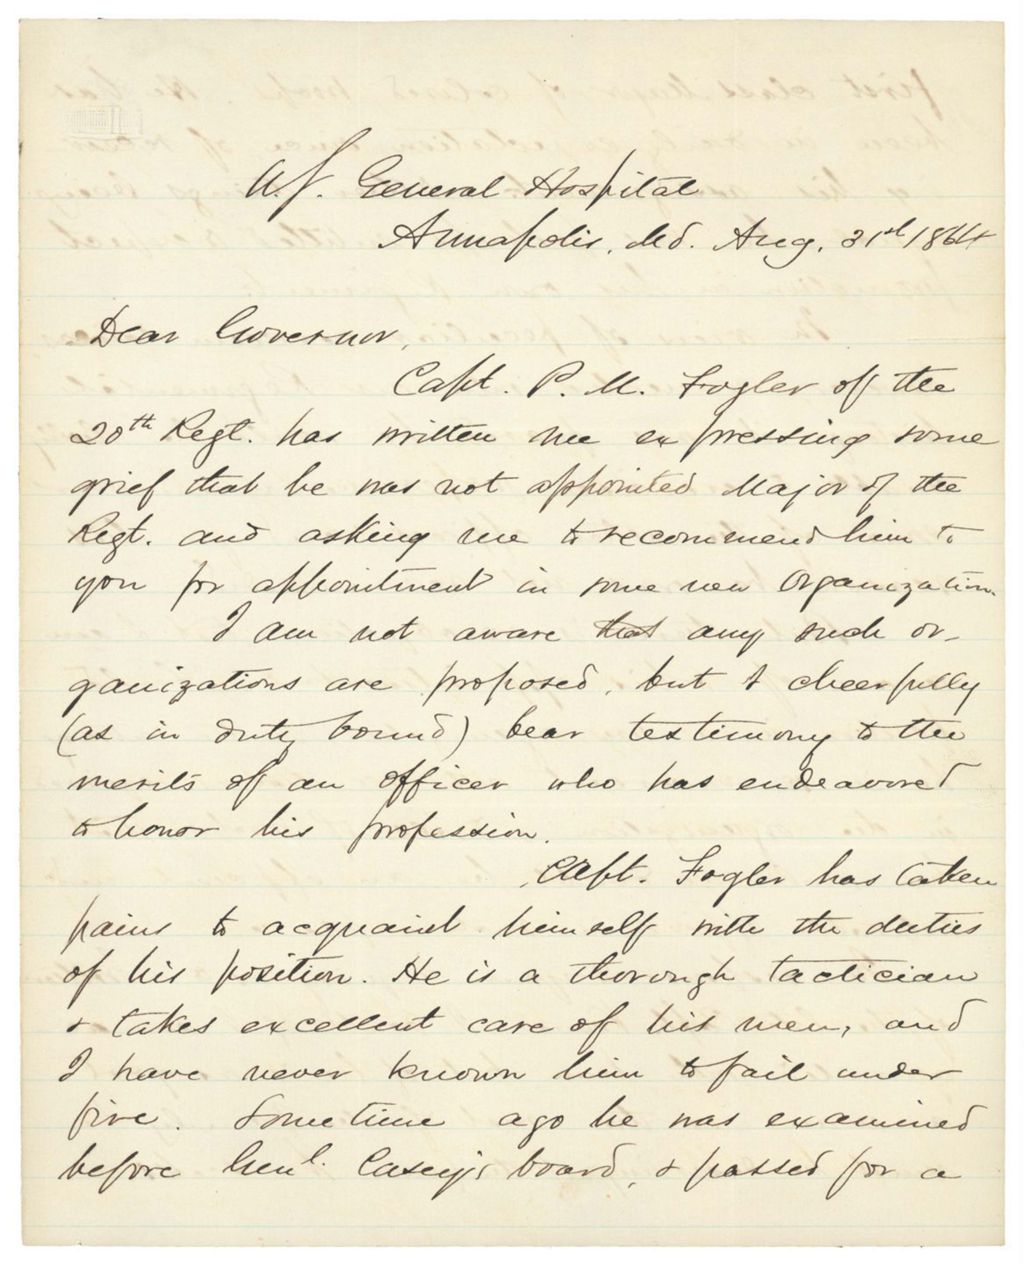 U.S. General Hospital
Annapolis, Md. Aug. 31st 1864
Dear Governor,
Capt. P. M. Fogler of the
20th Regt. has written me expressing some
grief that he was not appointed Major of the
Regt. and asking me to recommend him to
you for appointment in some new organization.
I am not aware that any such or-
ganizations are proposed, but I cheerfully
(as in duty bound) bear testimony to the
merits of an officer who has endeavored
to honor his profession.
Capt. Fogler has taken
pains to acquaint himself with the duties
of his position. He is a thorough tactician
& takes excellent care of his men, and
I have never known him to fail under
fire. Sometime ago he was examined
before Genl. Casey's board, & passed for a